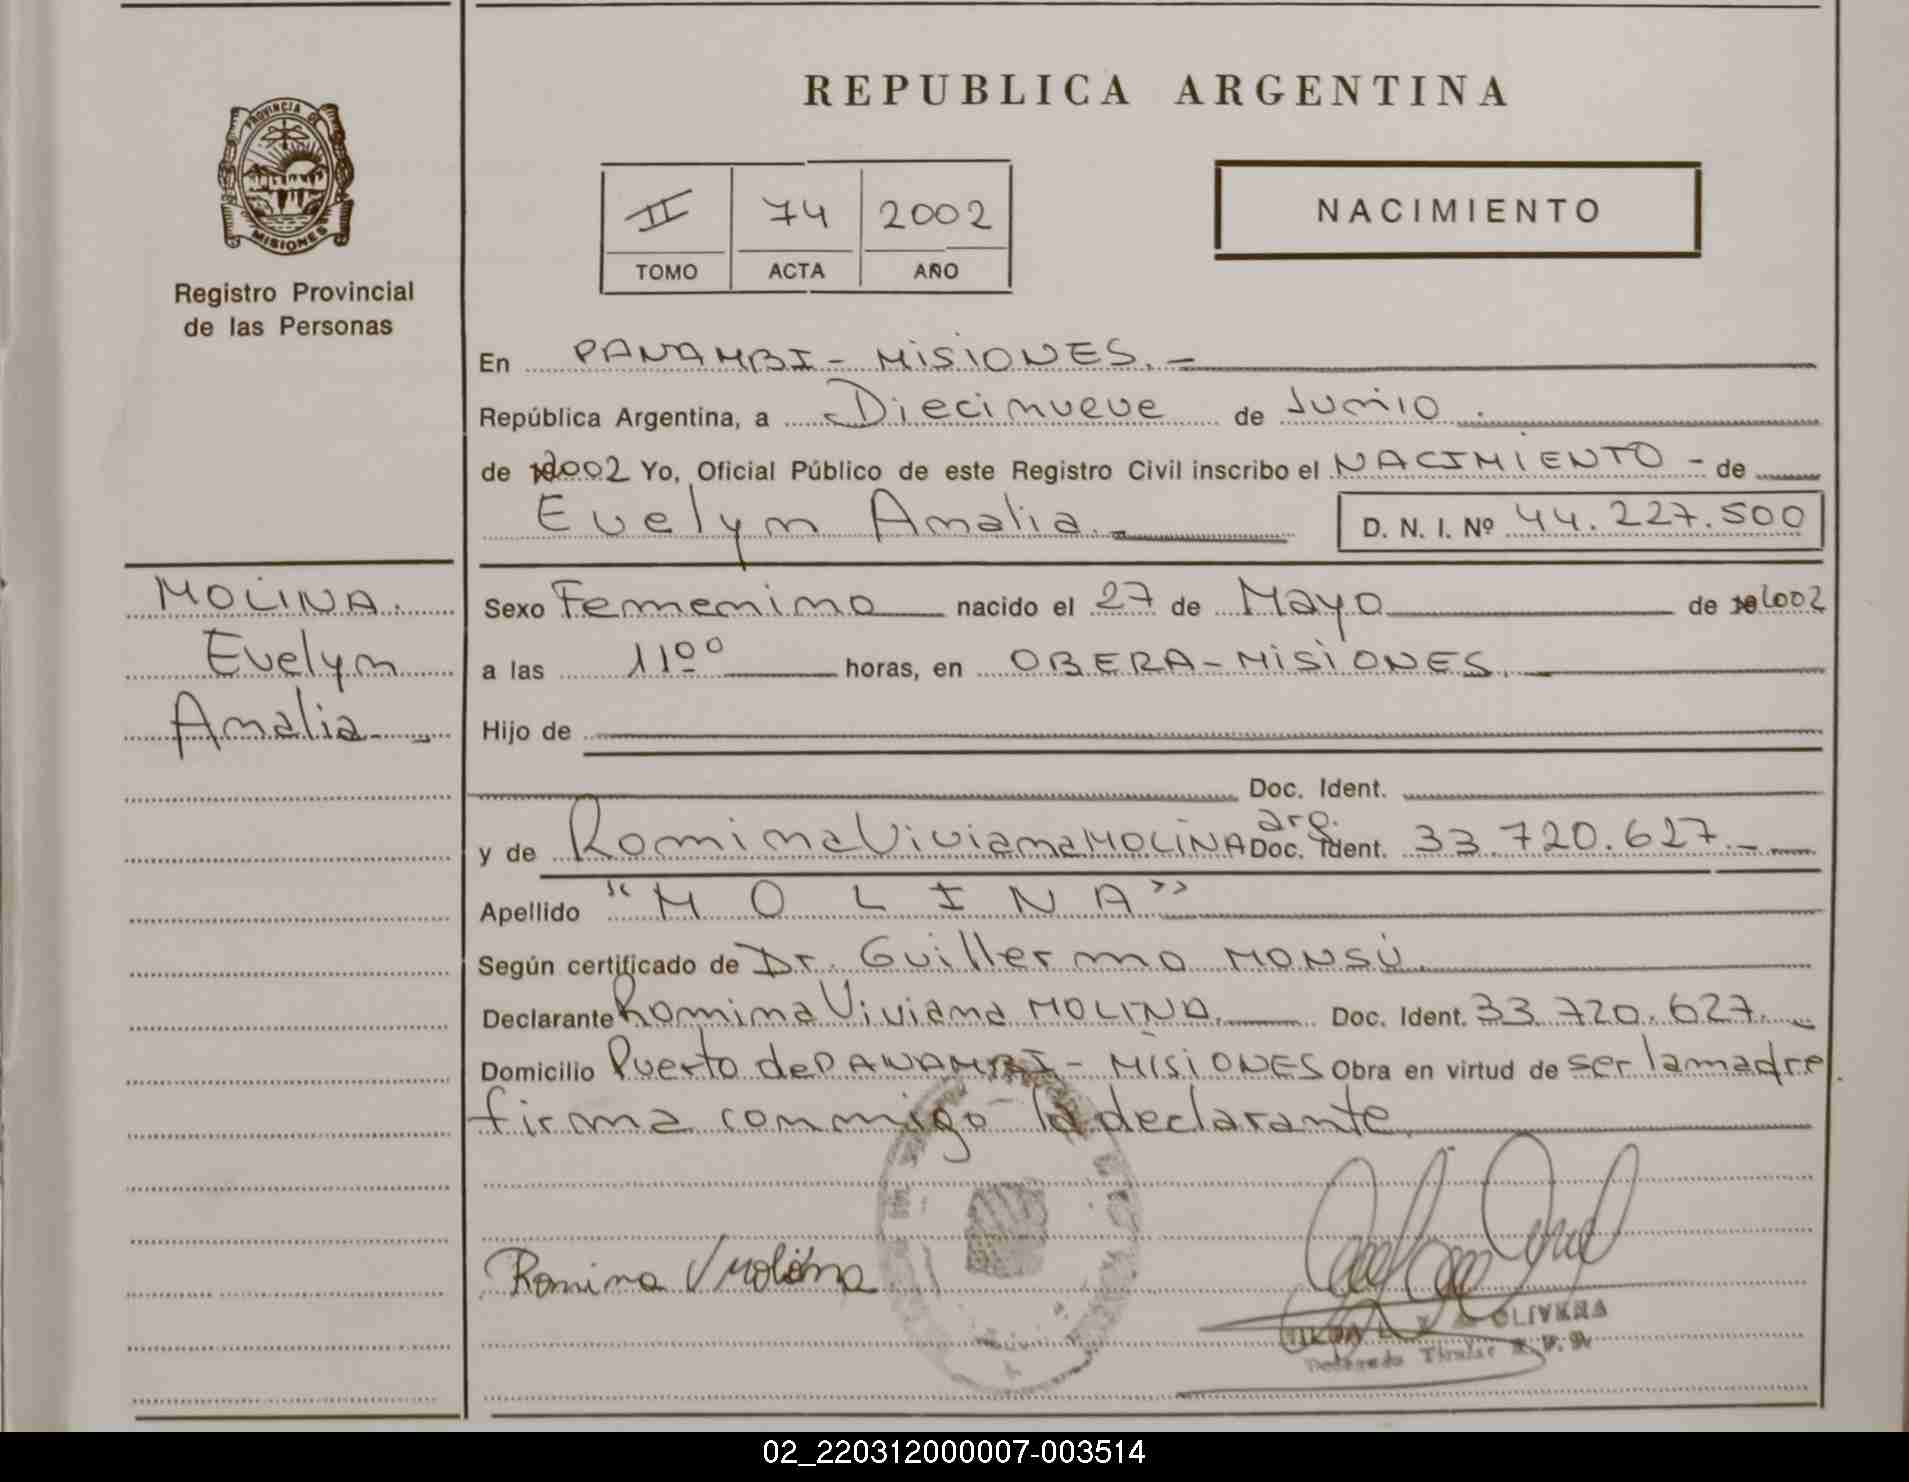 REPUBLICA ARGENTINA
PROVINCIA DE
MISIONES
Registro Provincial
de las Personas
II 74 2002
TOMO ACTA AÑO
NACIMIENTO
En PANAMBI - MISIONES. -
República Argentina, a Diecinueve de Junio .
de 2002 Yo, Oficial Público de este Registro Civil inscribo el NACIMIENTO - de
Evelyn Amalia. D. N. I. Nº 44.227.500
MOLINA.
Evelyn
Amalia -
Sexo Femenino nacido el 27 de Mayo de 2002
a las 11 00 horas, en OBERA - MISIONES.
Hijo de
Doc. Ident.
y de Romina Viviana MOLINA Doc. Ident. arg. 33.720.627. -
Apellido "M O L I N A"
Según certificado de Dr. Guillermo MONSÚ.
Declarante Romina Viviana MOLINA. Doc. Ident. 33.720.627. -
Domicilio Puerto de PANAMBI - MISIONES Obra en virtud de ser la madre.
firma conmigo la declarante.
Romina V Molina
OLIVERA
Titular
02_220312000007-003514